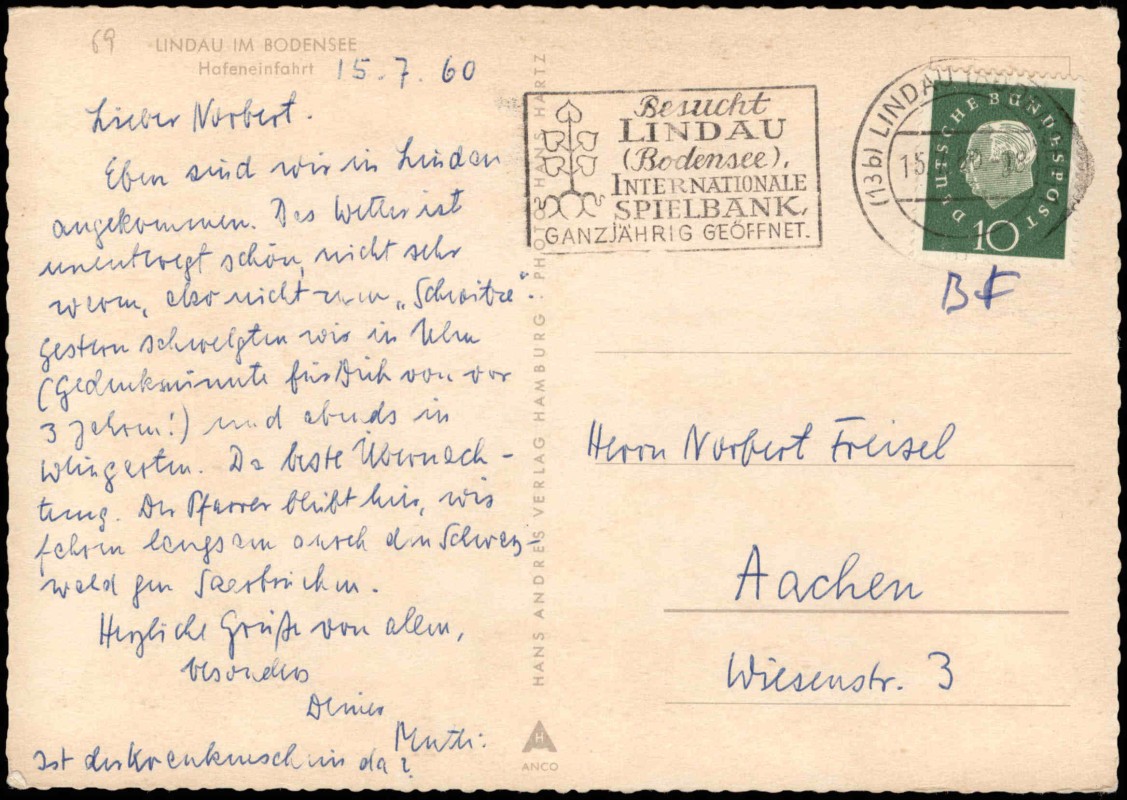 69
LINDAU IM BODENSEE
Hafeneinfahrt
15.7.60
Lieber Norbert.
Eben sind wir in Lindau
angekommen. Das Wetter ist
unentwegt schön, nicht sehr
warm, also nicht zum „Schwitze".
Gestern schwelgten wir in Ulm
(Gedenkminute für Dich von vor
3 Jahren!) und abends in
Weingarten. Da beste Übernach-
tung. Der Pfarrer bleibt hier, wir
fahren langsam durch den Schwarz-
wald gen Saarbrücken.
Herzliche Grüße von allen,
besonders
Deiner
Mutti.
Ist der Krankenschein da?
HANS ANDRES VERLAG HAMBURG · PHOTO: HANS HARTZ
H
ANCO
Besucht
LINDAU
(Bodensee),
INTERNATIONALE
SPIELBANK,
GANZJÄHRIG GEÖFFNET.
(13b) LINDAU
15. -18
DEUTSCHE BUNDESPOST
10
BF
Herrn Norbert Freisel
Aachen
Wiesenstr. 3